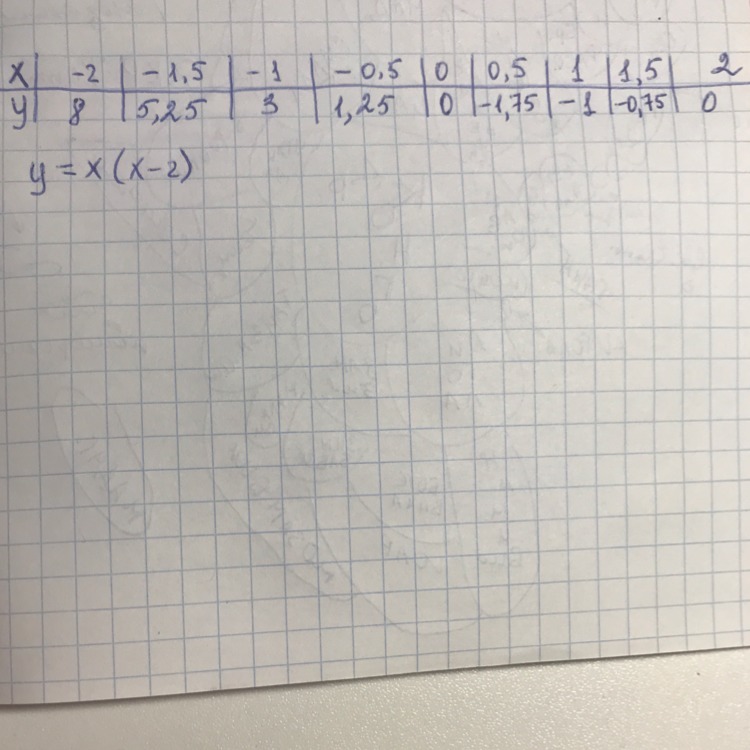 x | -2 | -1,5 | -1 | -0,5 | 0 | 0,5 | 1 | 1,5 | 2
y | 8 | 5,25 | 3 | 1,25 | 0 | -1,75 | -1 | -0,75 | 0
y = x (x-2)